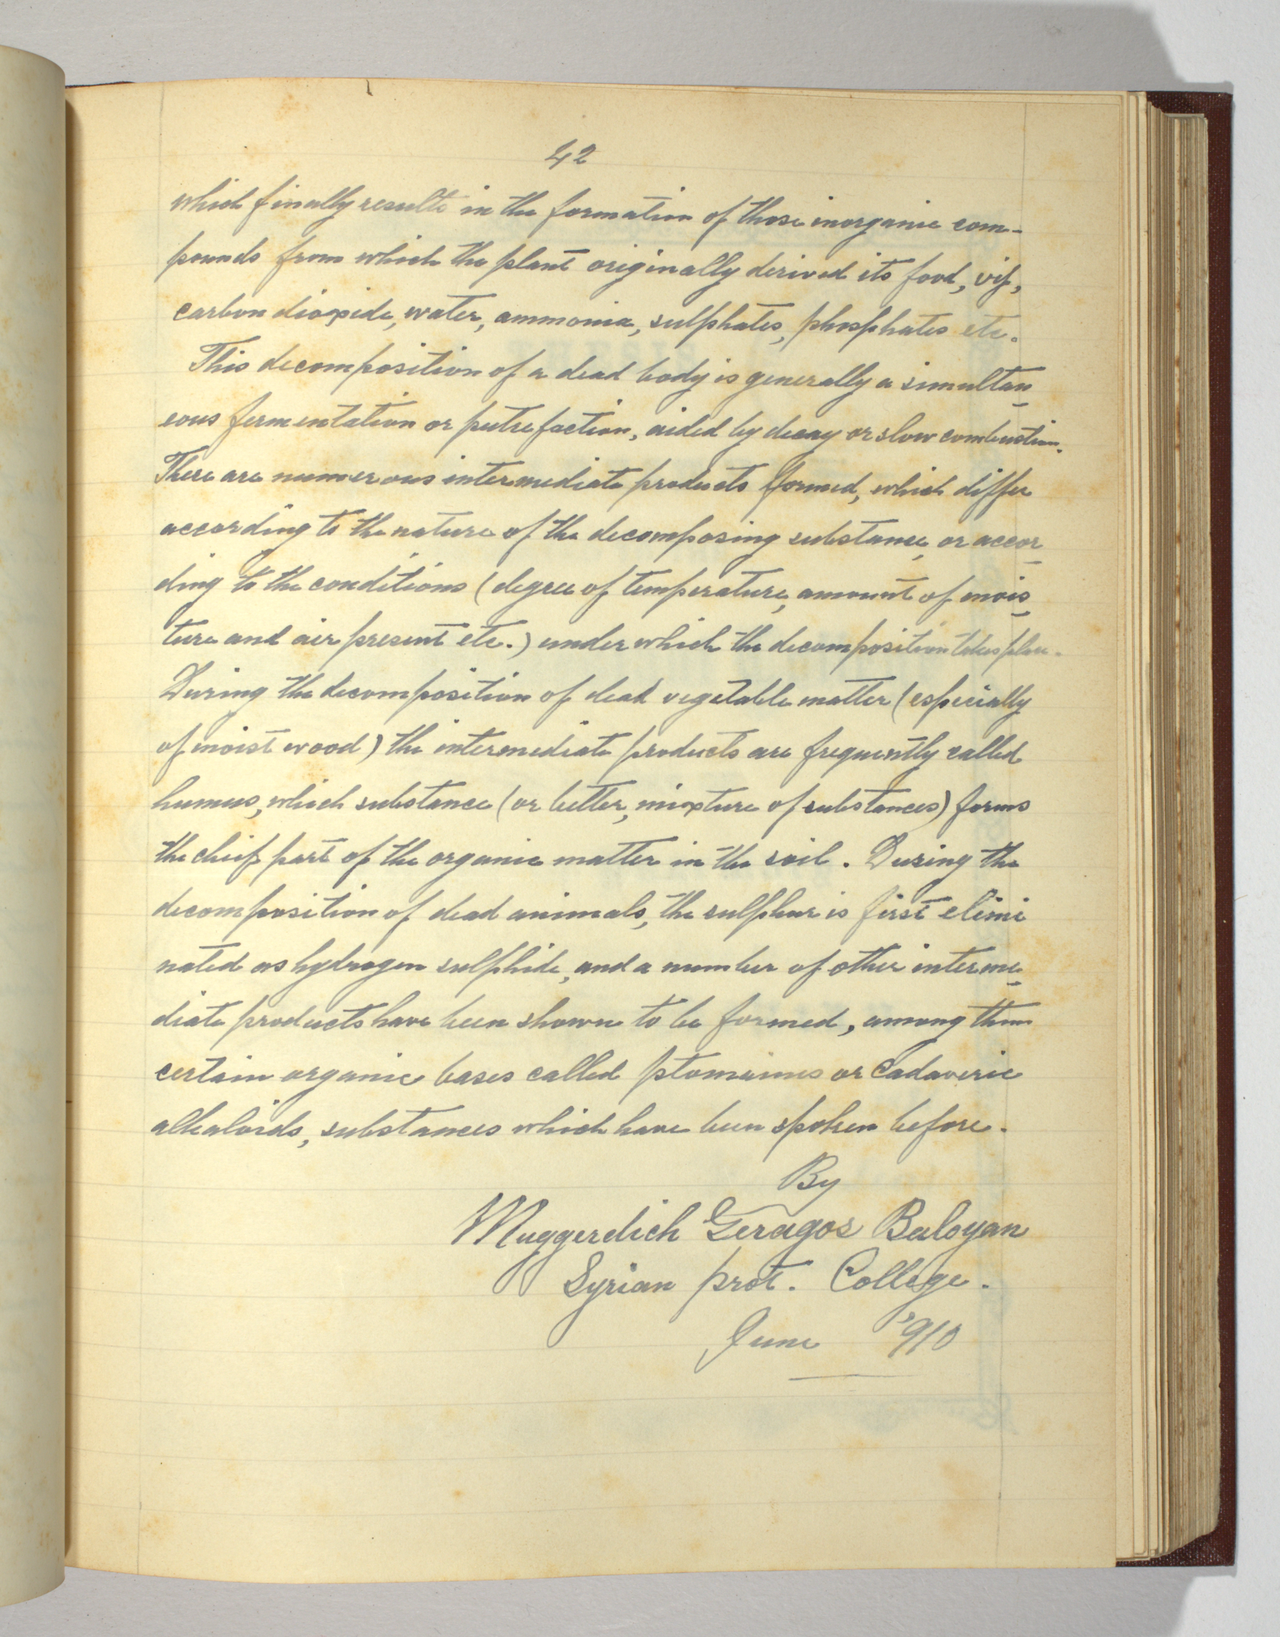 42
which finally results in the formation of those inorganic com-
pounds from which the plant originally derived its food, viz,
carbon dioxide, water, ammonia, sulphates, phosphates etc.
This decomposition of a dead body is generally a simultan
eous fermentation or putrefaction, aided by decay or slow combustion.
There are numerous intermediate products formed, which differ
according to the nature of the decomposing substance, or accor
ding to the conditions (degree of temperature, amount of mois
ture and air present etc.) under which the decomposition takes place.
During the decomposition of dead vegetable matter (especially
of moist wood) the intermediate products are frequently called
humus, which substance (or better, mixture of substances) forms
the chief part of the organic matter in the soil. During the
decomposition of dead animals, the sulphur is first elimi
nated as hydrogen sulphide, and a number of other interme
diate products have been shown to be formed, among them
certain organic bases called ptomaines or Cadaveric
alkaloids, substances which have been spoken before.
By
Muggerdich Geragos Baloyan
Syrian prot. College.
June '910